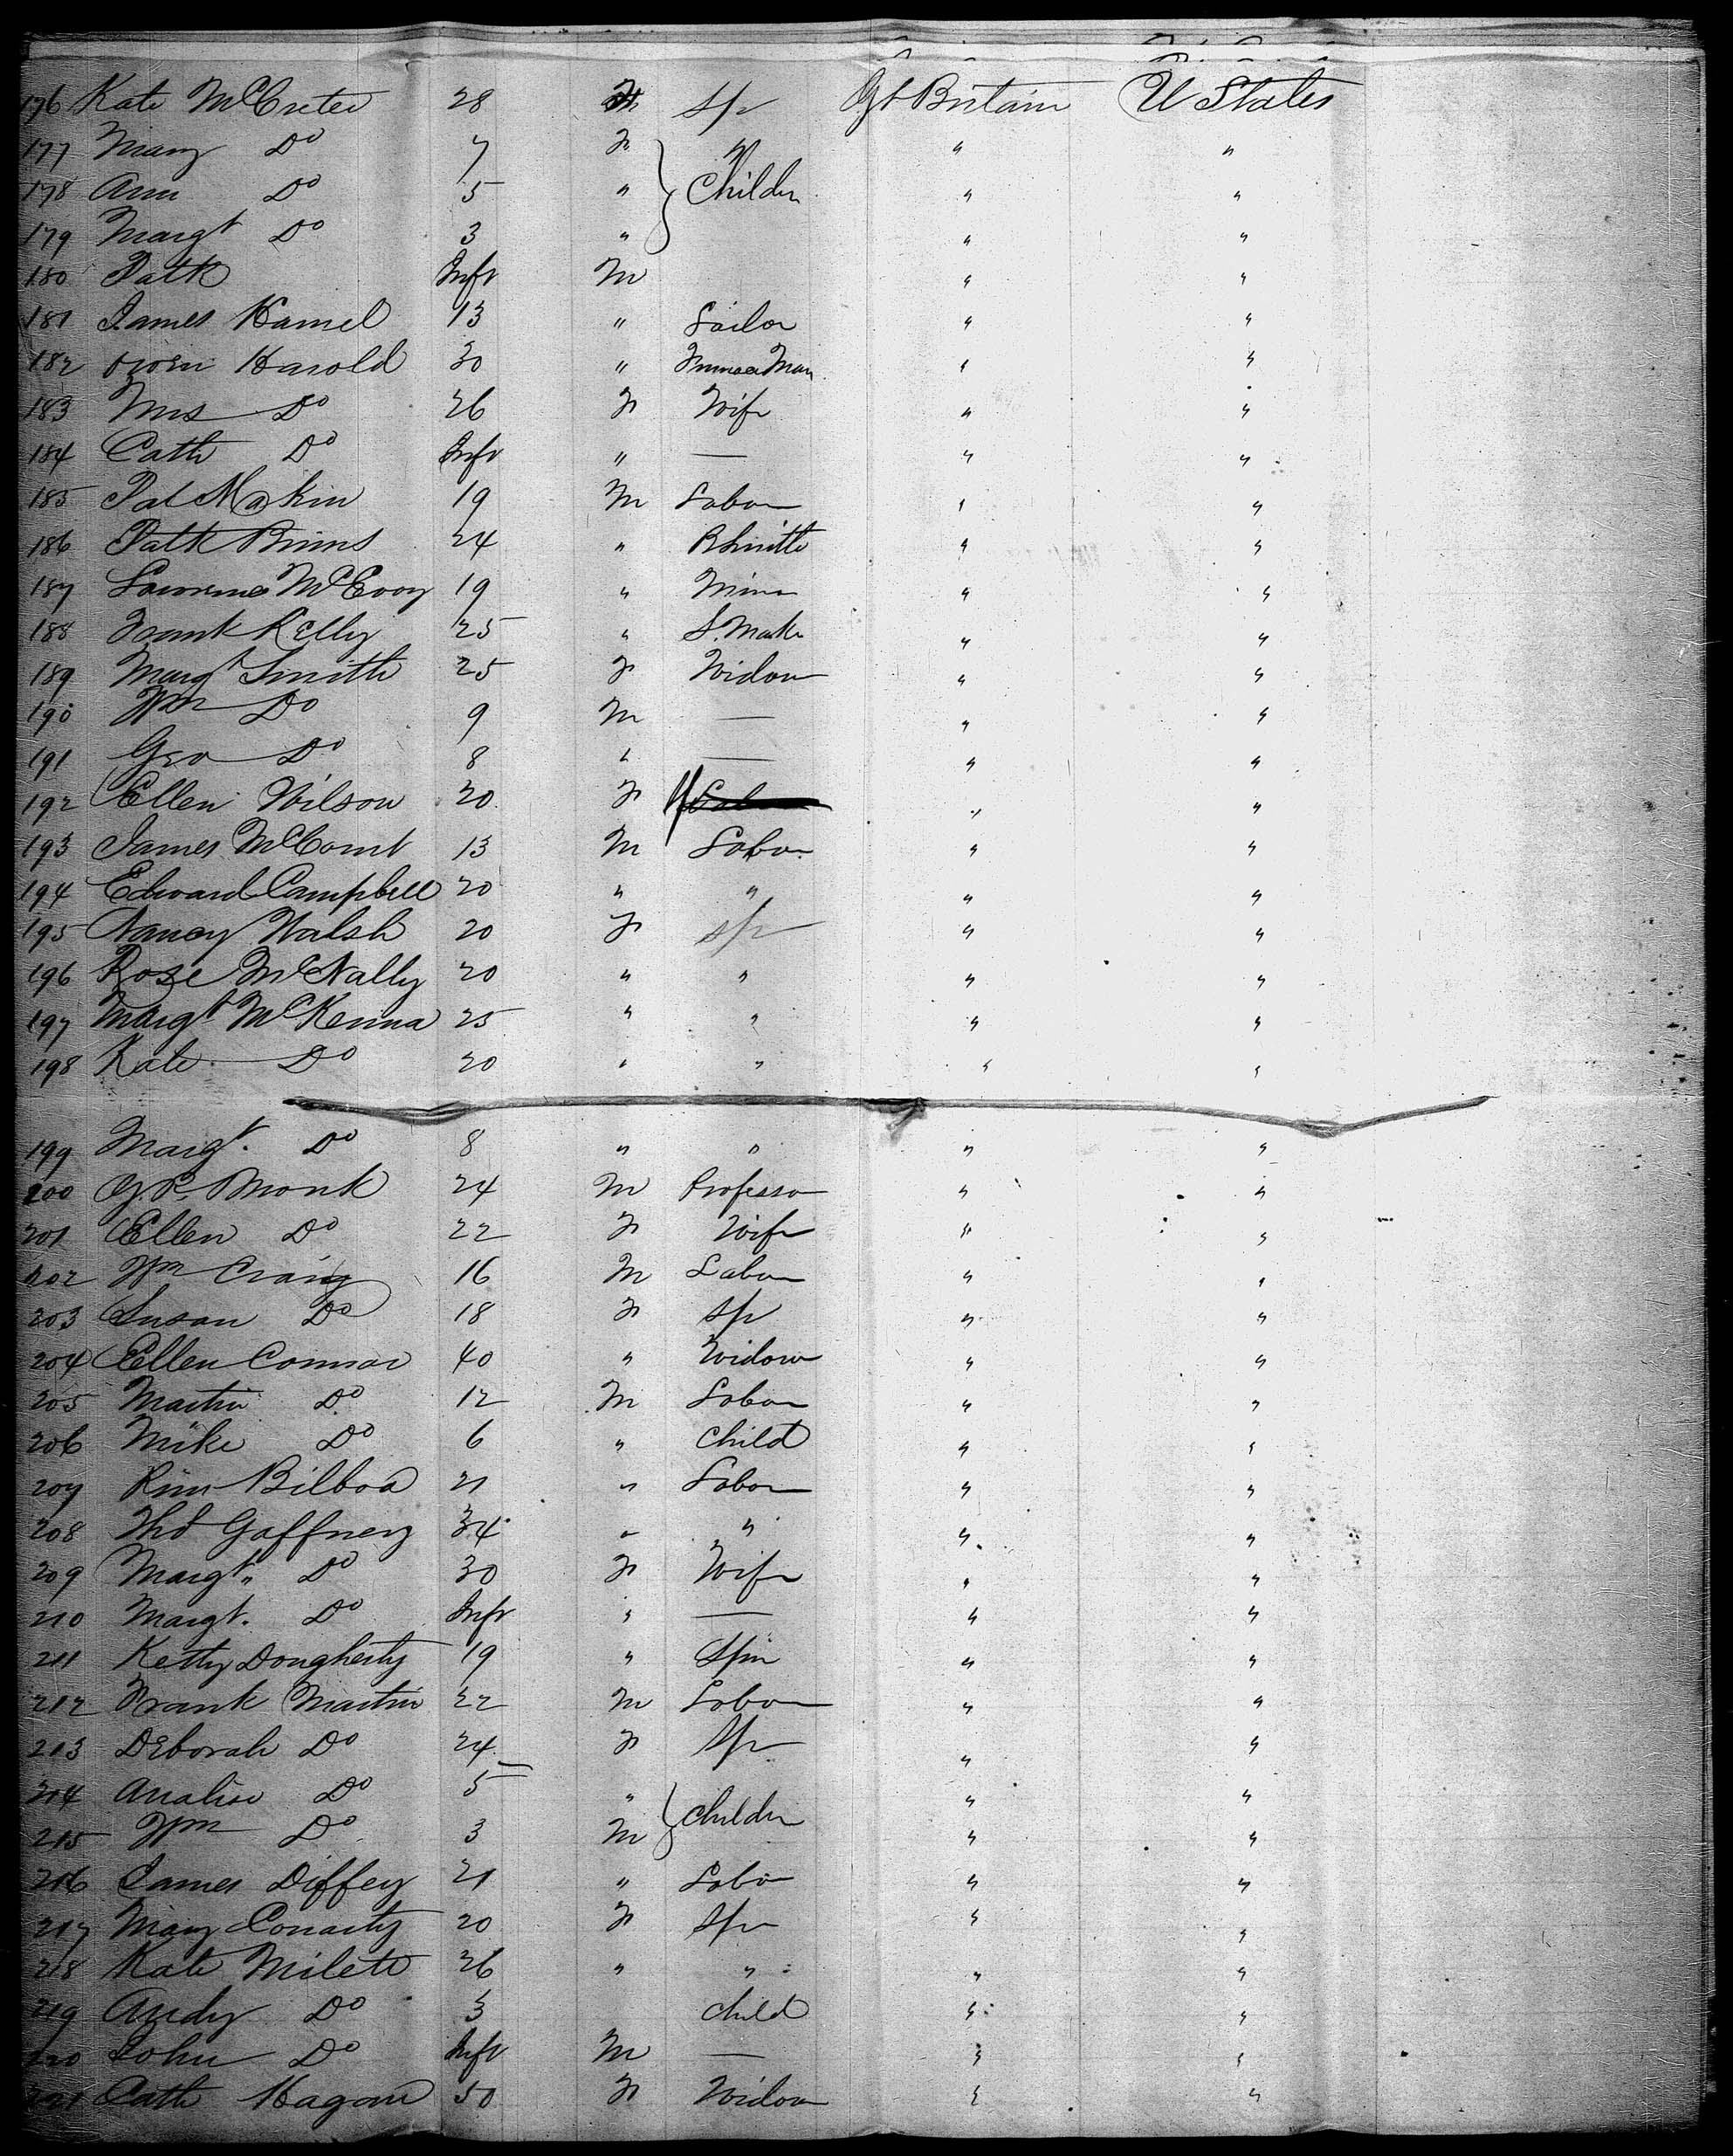 176 Kate McCretee 28 F Spr Gt Britain U States
177 Mary Do 7 F " " "
178 Ann Do 5 " Childn " "
179 Margt Do 3 " " "
180 Patk Inft M " "
181 James Hamel 13 " Sailor " "
182 Owen Harold 30 " Man " "
183 Mrs Do 26 F Wife " "
184 Cath Do Inft " — " "
185 Pat Makin 19 M Labor " "
186 Patk Binns 24 " BSmith " "
187 Lawrence McEvoy 19 " Miner " "
188 Frank Kelly 25 " S. Maker " "
189 Margt Smith 25 F Widow " "
190 Wm Do 9 M — " "
191 Geo Do 8 " — " "
192 Ellen Wilson 20 F " "
193 James McComt 13 M Labor " "
194 Edward Campbell 20 " " " "
195 Nancy Walsh 20 F Spr " "
196 Rose McNally 20 " " " "
197 Margt McKenna 25 " " " "
198 Kate Do 20 " " " "
199 Margt. Do 8 " " " "
200 G.R. Monk 24 M Professor " "
201 Ellen Do 22 F Wife " "
202 Wm Craig 16 M Labor " "
203 Susan Do 18 F Spr " "
204 Ellen Connor 40 " Widow " "
205 Martin Do 12 M Labor " "
206 Mike Do 6 " Child " "
207 Bilboa 21 " Labor " "
208 Thos Gaffney 34 " " " "
209 Margt. Do 30 F Wife " "
210 Margt. Do Inft " — " "
211 Ketty Dougherty 19 " Spin " "
212 Frank Martin 22 M Labor " "
213 Deborah Do 24 F Spr " "
214 Analise Do 5 " Childn " "
215 Wm Do 3 M " "
216 James Diffey 21 " Labor " "
217 Mary Conarty 20 F Spr " "
218 Kate Milett 26 " " " "
219 Andy Do 3 Child " "
220 John Do Inft M — " "
221 Cath Hagan 50 F Widow " "